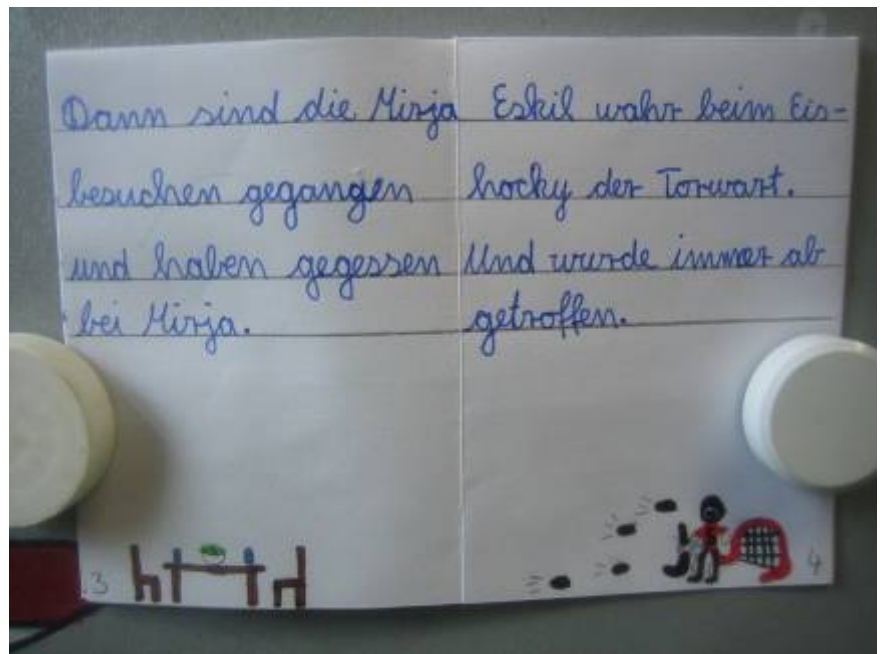 Dann sind die Mirja
besuchen gegangen
und haben gegessen
bei Mirja.
3
Eskil wahr beim Eis-
hocky der Torwart.
Und wurde immer ab
getroffen.
4